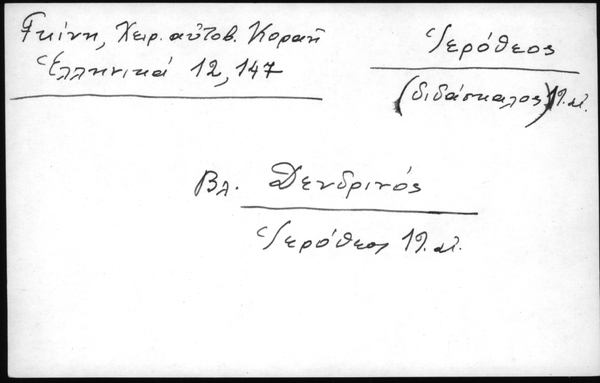 Γκίνη, Χειρ. αὐτοβ. Κοραῆ
Ἑλληνικά 12, 147
Ἱερόθεος
(διδάσκαλος) 19. αἰ.
Βλ. Δενδρινός
Ἱερόθεος 19. αἰ.